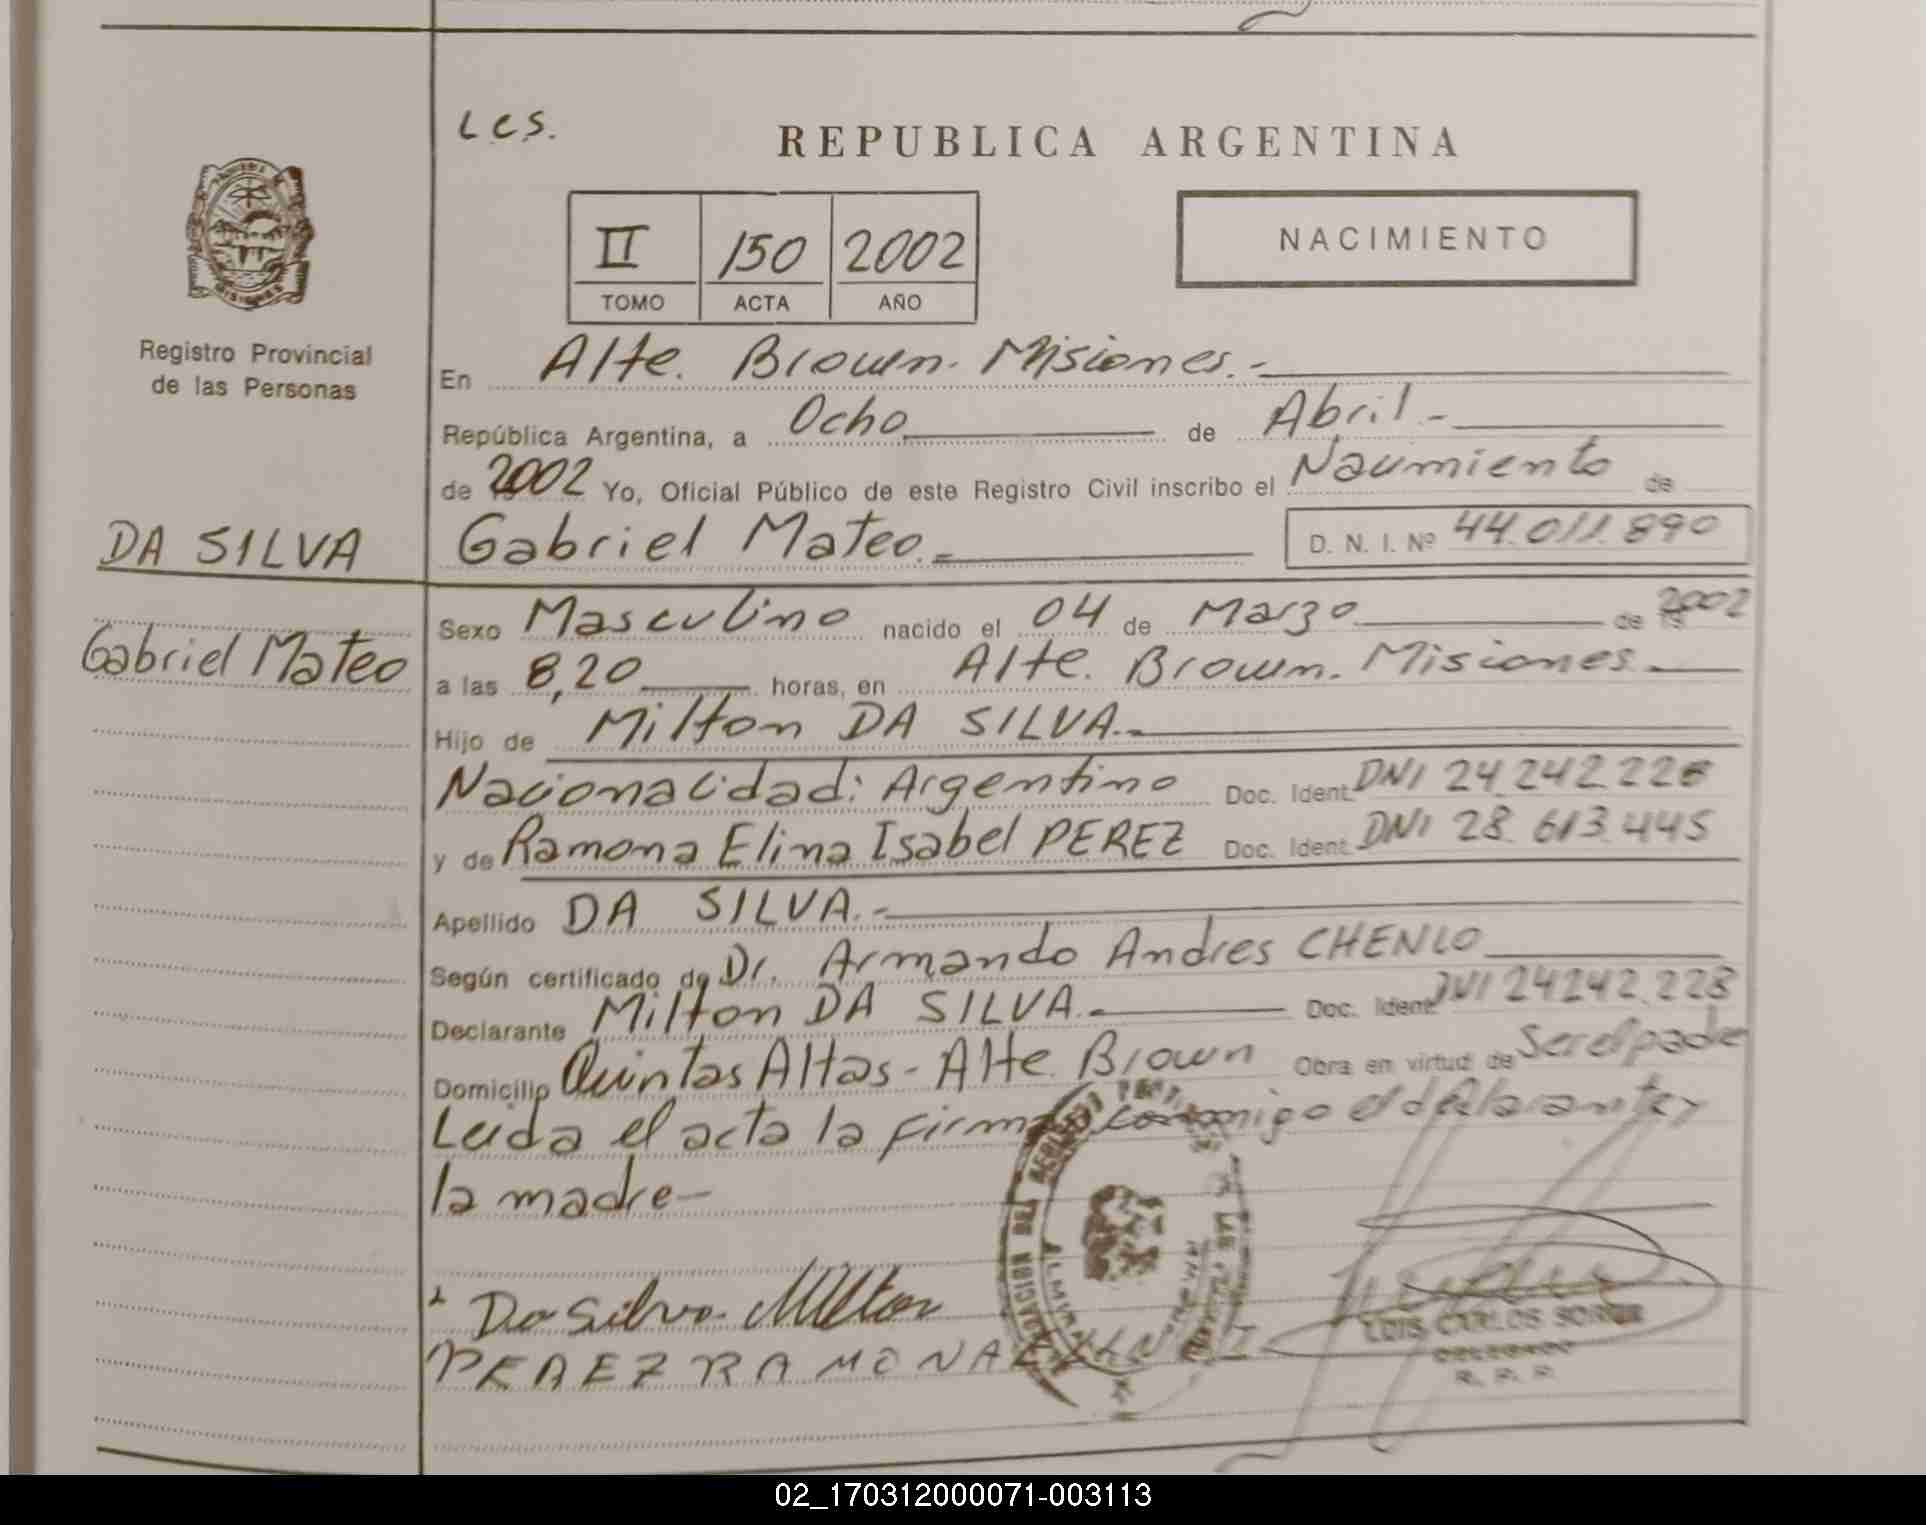 Lcs.
REPUBLICA ARGENTINA
II 150 2002
TOMO ACTA AÑO
NACIMIENTO
MISIONES
Registro Provincial
de las Personas
En Alte. Brown. Misiones.-
República Argentina, a Ocho de Abril.-
de 2002 Yo, Oficial Público de este Registro Civil inscribo el Nacimiento de
DA SILVA
Gabriel Mateo.= D. N. I. Nº 44.011.890
Gabriel Mateo
Sexo Masculino nacido el 04 de Marzo de 2002
a las 8,20 horas, en Alte. Brown. Misiones.
Hijo de Milton DA SILVA.-
Nacionalidad: Argentino Doc. Ident. DNI 24.242.228
y de Ramona Elina Isabel PEREZ Doc. Ident. DNI 28.613.445
Apellido DA SILVA.-
Según certificado de Dr. Armando Andres CHENLO
Declarante Milton DA SILVA.- Doc. Ident. DNI 24242.228
Domicilio Quintas Altas - Alte. Brown Obra en virtud de Ser el padre
Leida el acta la firma conmigo el declarante y
la madre-
Da Silva Milton
PEREZ RAMONA
LUIS CARLOS
DELEGADO
R. P. P.
02_170312000071-003113